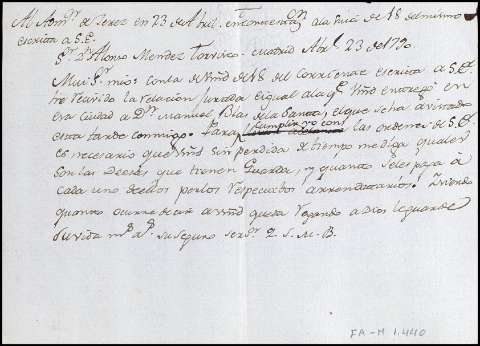 Al Adm.or de Jerez en 23 de Abril. en contestaz.on a la suia de 18 del mismo
escrita a S.E.
S.r D.n Alonso Mendez Torvisco. Madrid Ab.l 23 de 1790
Mui S.r mio: con la de Vmd de 18 del corriente escrita a S.E.
he recivido la relacion jurada e igual a la q.e Vmd entregó en
esa ciudad a D.n Manuel Blas de la el que se ha avistado
esta tarde conmigo. Para cumplir yo con las ordenes de S.E.
es necesario que Vmd sin perdida de tiempo me diga quales
son las Deesas que tienen Guarda, y quanto se les paga a
cada uno de ellos por los respectivos arrendatarios: Siendo
quanto ocurre decir a Vmd queda rogando a Dios le guarde
su vida m.s a.s su seguro ser.or Q. S. M. B.
FA-M 1.440